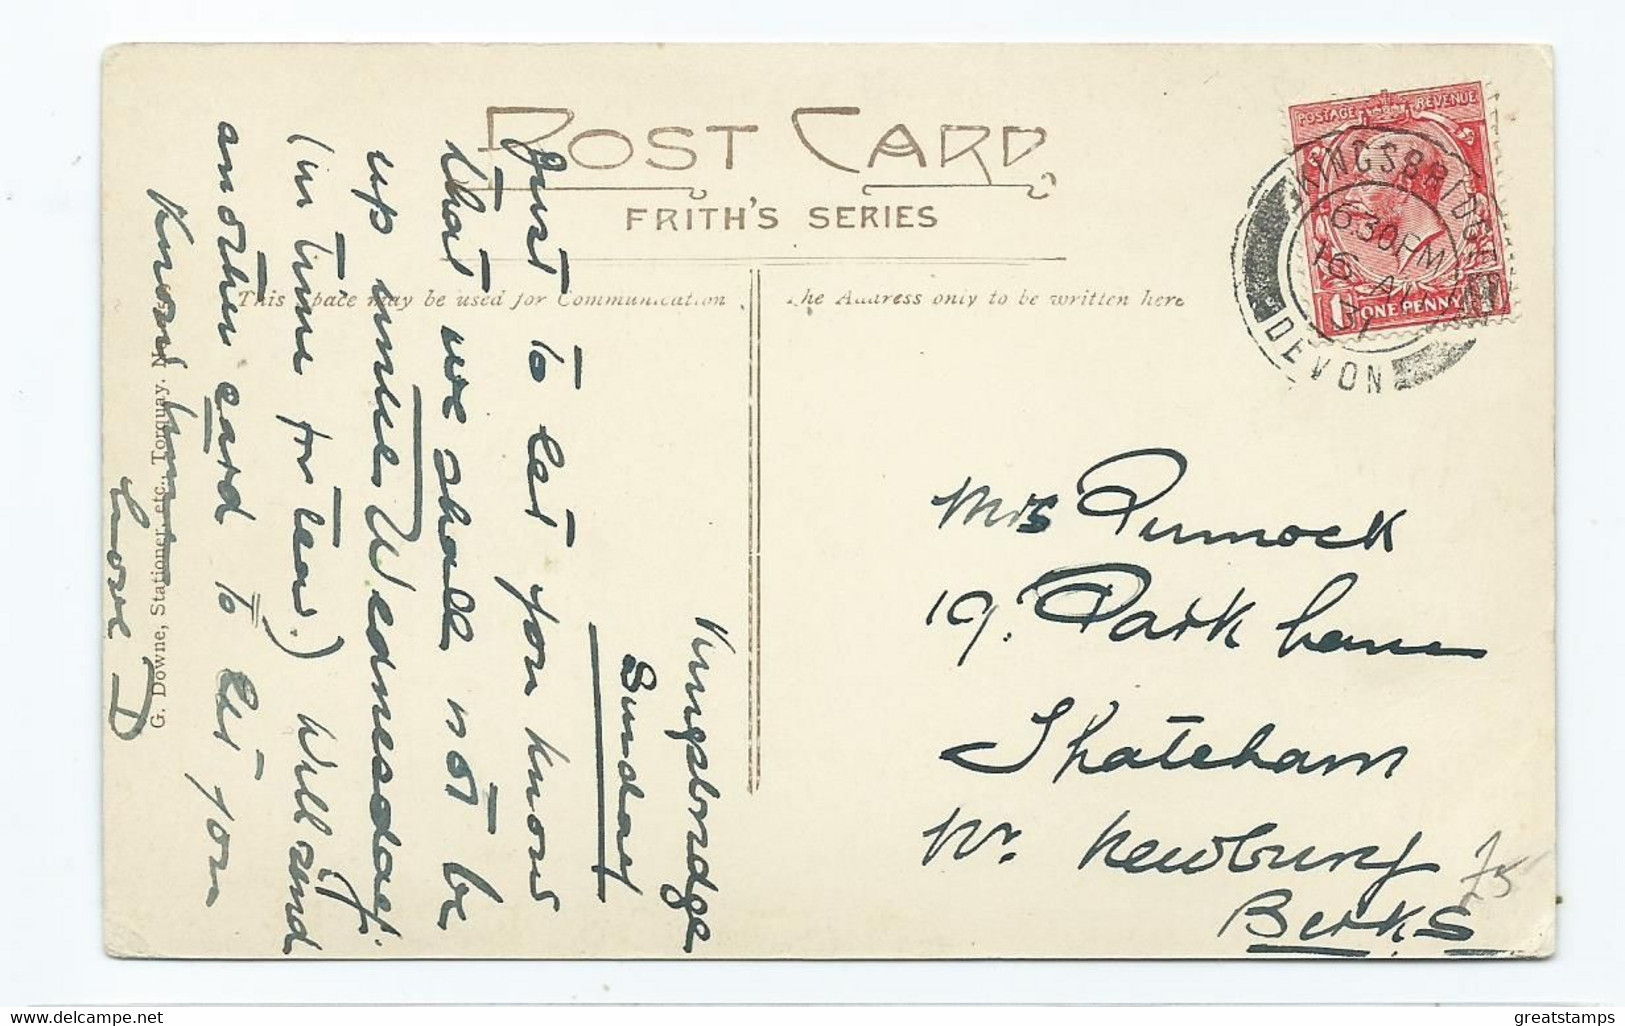 POST CARD
FRITH'S SERIES
This space may be used for Communication
The Address only to be written here
POSTAGE REVENUE
1 ONE PENNY
KINGSBRIDGE
6 30 PM
16
31
DEVON
Kingsbridge
Sunday
Just to let you know
that we shall not be
up until Wednesday.
(in time for tea.) Will send
another card to let you
know
Love D
G. Downe, Stationer, etc., Torquay.
Mrs Pinnock
19. Park Lane
Thatcham
Nr. Newbury
Berks
75
greatstamps